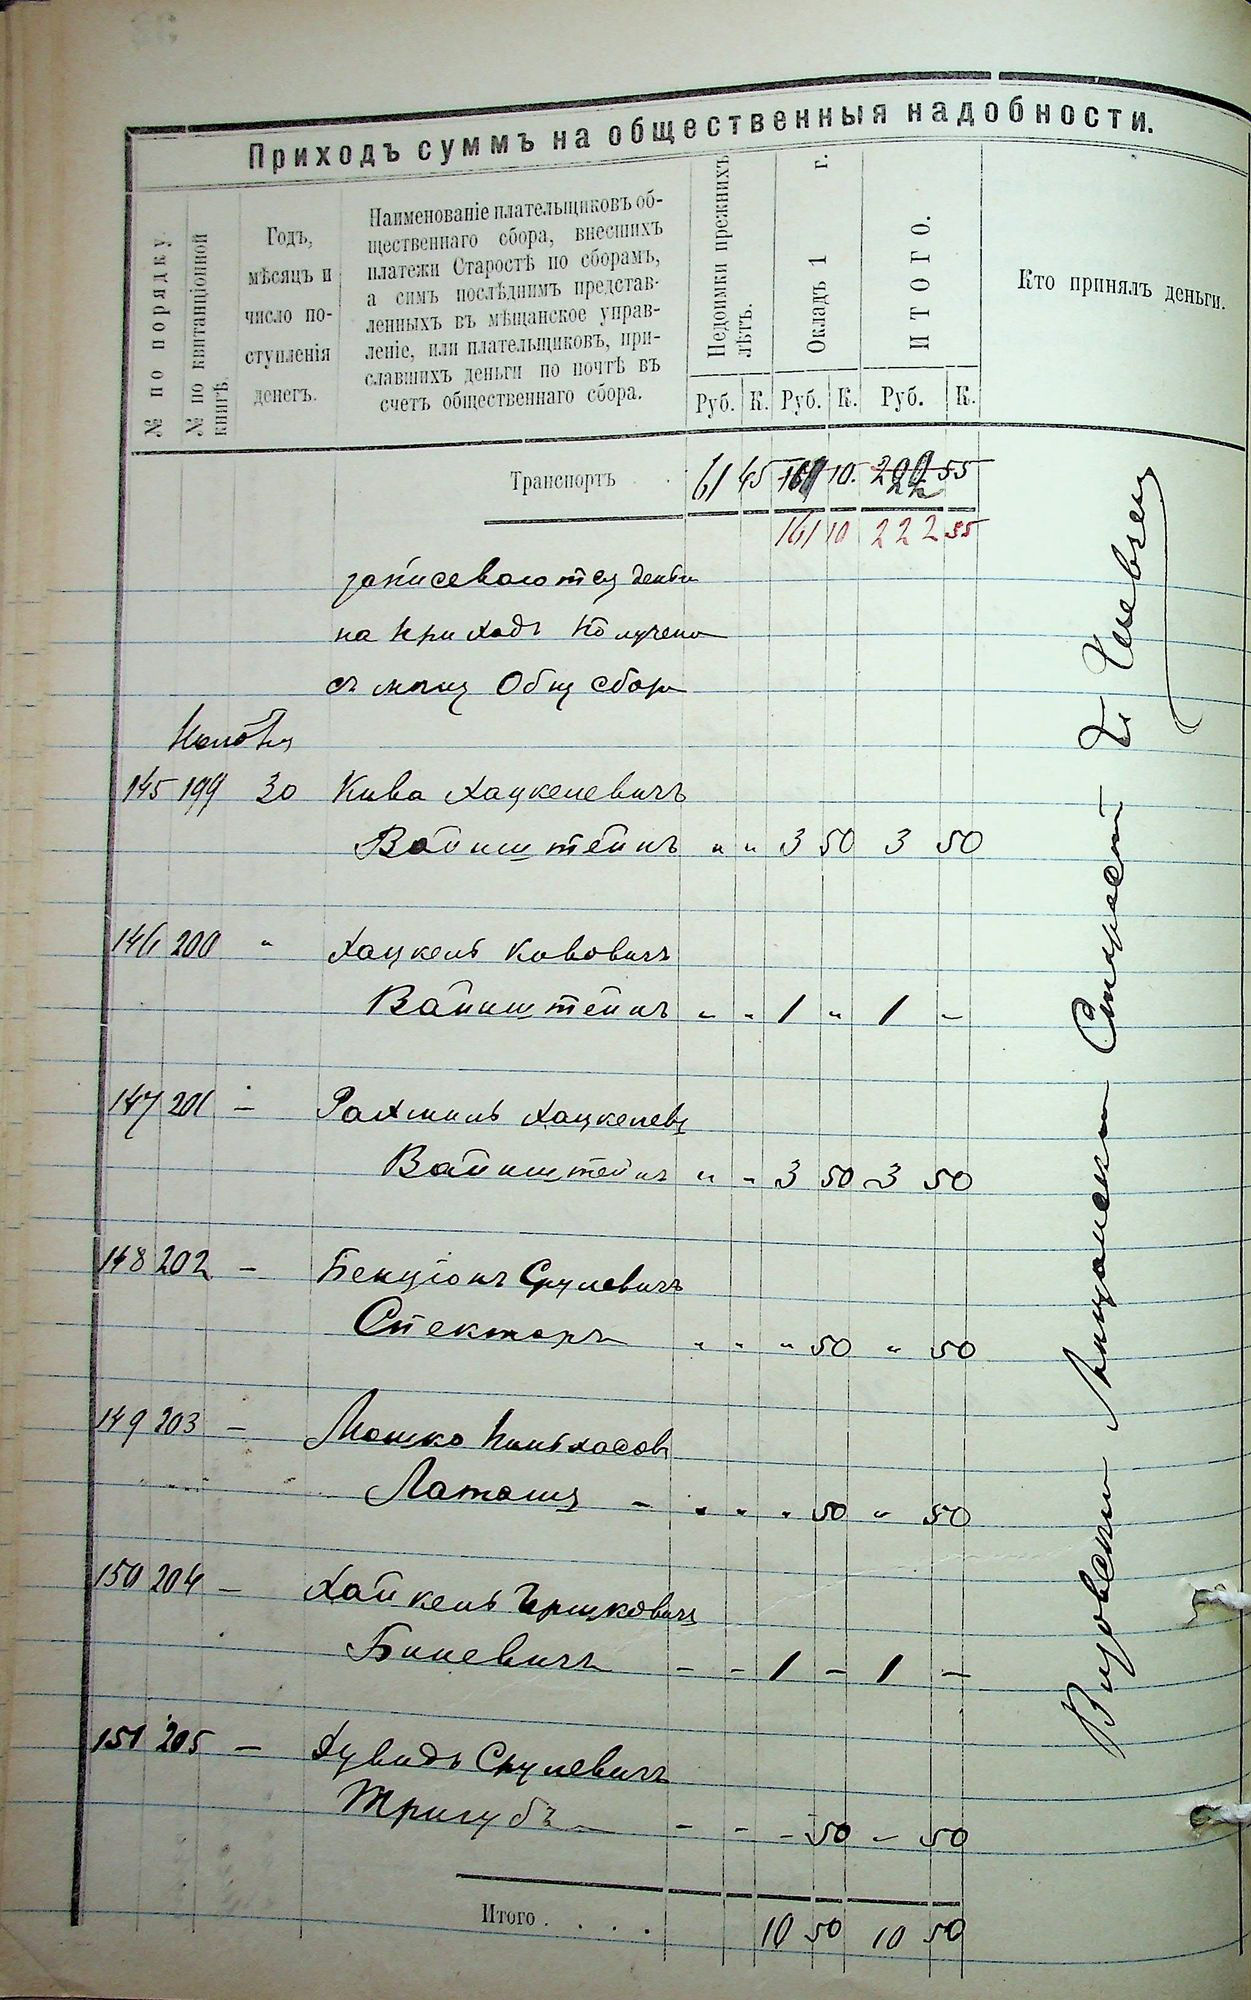 Приходъ суммъ на общественныя надобности.
№ по порядку.
№ по квитанціонной
книгѣ.
Годъ,
мѣсяцъ и
число по-
ступленія
денегъ.
Наименованіе плательщиковъ об-
щественнаго сбора, внесшихъ
платежи Старостѣ по сборамъ,
а симъ послѣднимъ представ-
ленныхъ въ мѣщанское управ-
леніе, или плательщиковъ, при-
славшихъ деньги по почтѣ въ
счетъ общественнаго сбора.
Недоимки прежнихъ
лѣтъ.
Окладъ 1 г.
ИТОГО.
Кто принялъ деньги.
Руб. К. Руб. К. Руб. К.
Транспортъ 61 45 161 10. 222 55
161 10 222 55
на приходъ получено
145 199 30 Кива Хацкелевичъ
Вайнштейнъ " " 3 50 3 50
146 200 " Хацкель Кивовичъ
Вайнштейнъ " " 1 " 1 –
147 201 – Рахмиль Хацкелев
Вайнштейнъ " " 3 50 3 50
148 202 – Бенціонъ Срулевичъ
Спекторъ " " " 50 " 50
149 203 – Мошко Пинхасов
– " " " 50 " 50
150 204 – Хайкель Гершковичъ
Биневичъ – – 1 – 1 –
151 205 – Срулевичъ
Тригубъ – – – 50 – 50
Итого . . . . 10 50 10 50
Староста